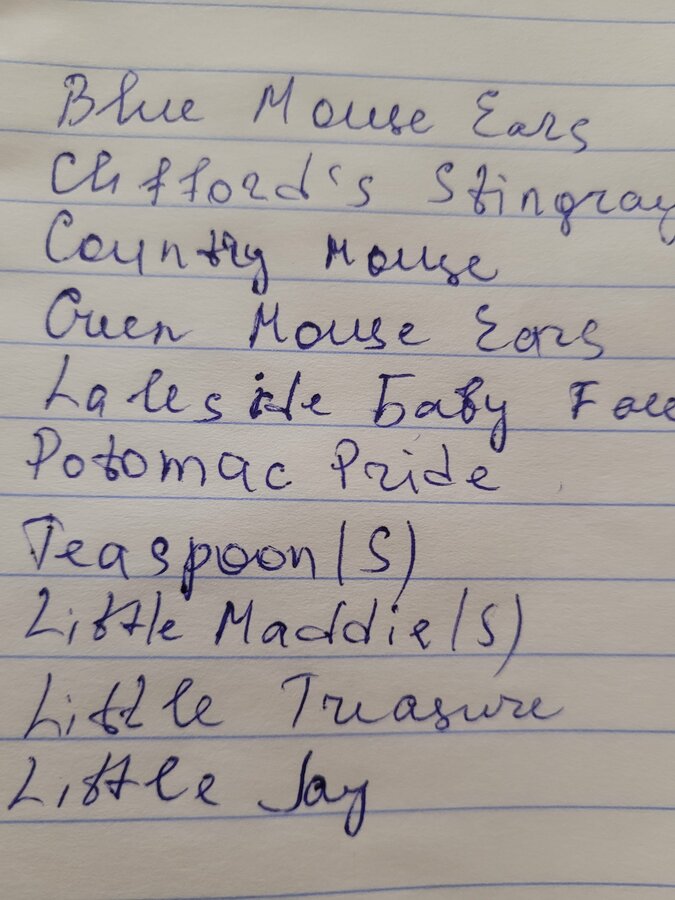 Blue Mouse Ears
Clifford's Stingray
Country Mouse
Green Mouse Ears
Lakeside Baby Face
Potomac Pride
Teaspoon (S)
Little Maddie (S)
Little Treasure
Little Jay